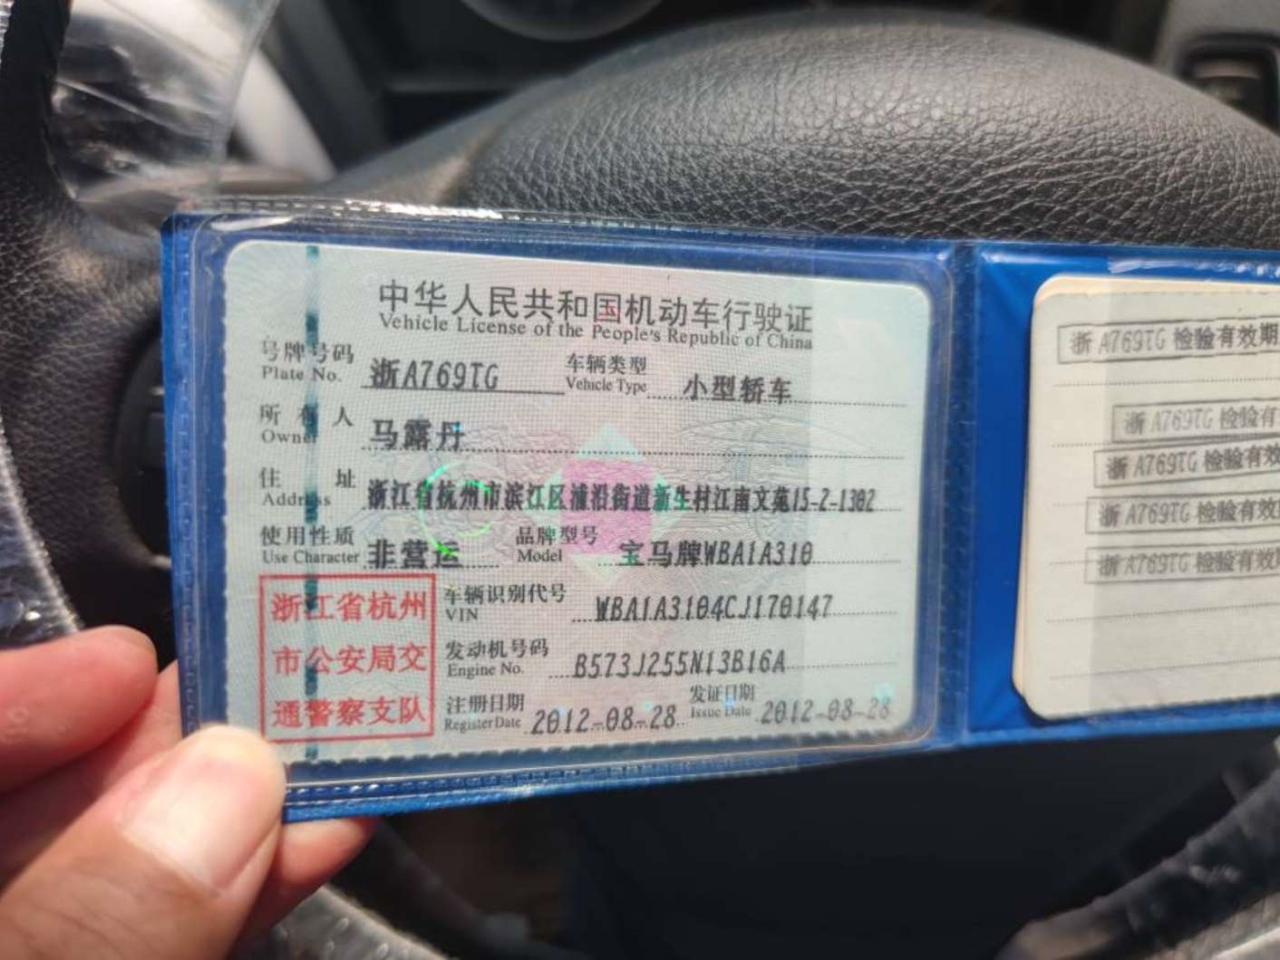 中华人民共和国机动车行驶证
Vehicle License of the People's Republic of China
号牌号码 浙A769TG 车辆类型 小型轿车
Plate No. Vehicle Type
所有人 马露丹
Owner
住址 浙江省杭州市滨江区浦沿街道新生村江南文苑15-2-1302
Address
使用性质 非营运 品牌型号 宝马牌WBA1A310
Use Character Model
浙江省杭州
市公安局交
通警察支队
车辆识别代号 WBA1A3104CJ170147
VIN
发动机号码 B573J255N13B16A
Engine No.
注册日期 2012-08-28 发证日期 2012-08-28
Register Date Issue Date
浙A769TG 检验有效期
浙A769TG 检验有
浙A769TG 检验有
浙A769TG 检验有效
浙A769TG 检验有效